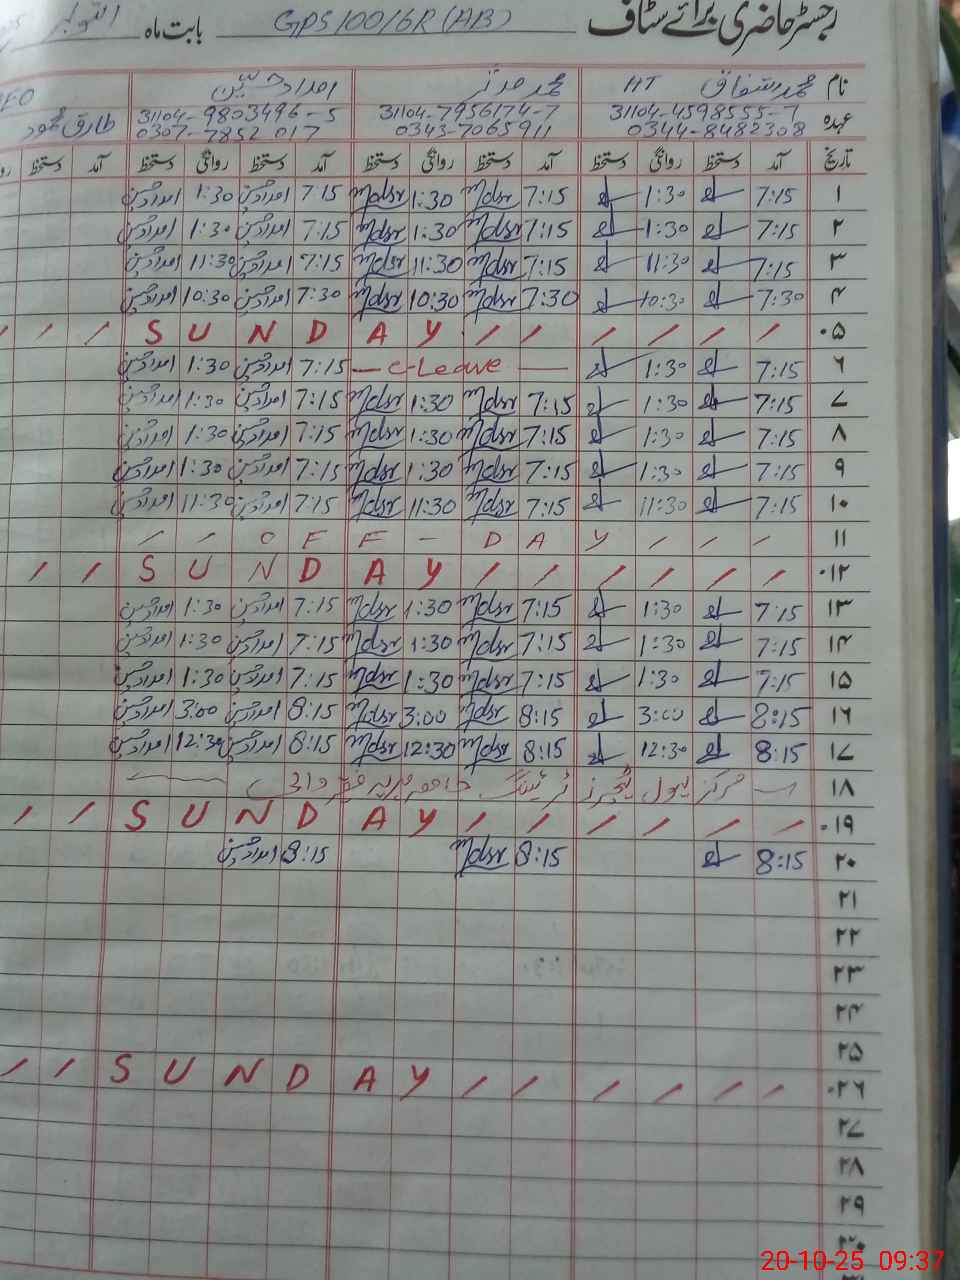 رجسٹر حاضری برائے سٹاف GPS 100/6R (AB) بابت ماہ اکتوبر
نام محمد اشفاق HT محمد مدثر امداد حسین
عہدہ 31104-4598555-7 31104-7956174-7 31104-9803496-5
0344-8482308 0343-7065911 0307-7852017 طارق محمود
تاریخ آمد دستخط روانگی دستخط آمد دستخط روانگی دستخط آمد دستخط روانگی دستخط آمد دستخط
۱ 7:15 1:30 7:15 Mdsr 1:30 Mdsr 7:15 امداد حسین 1:30 امداد حسین
۲ 7:15 1:30 7:15 Mdsr 1:30 Mdsr 7:15 امداد حسین 1:30 امداد حسین
۳ 7:15 11:30 7:15 Mdsr 11:30 Mdsr 7:15 امداد حسین 11:30 امداد حسین
۴ 7:30 10:30 7:30 Mdsr 10:30 Mdsr 7:30 امداد حسین 10:30 امداد حسین
۰۵ / / / / / / S U N D A Y / / /
۶ 7:15 1:30 — C-Leave — 7:15 امداد حسین 1:30 امداد حسین
۷ 7:15 1:30 7:15 Mdsr 1:30 Mdsr 7:15 امداد حسین 1:30 امداد حسین
۸ 7:15 1:30 7:15 Mdsr 1:30 Mdsr 7:15 امداد حسین 1:30 امداد حسین
۹ 7:15 1:30 7:15 Mdsr 1:30 Mdsr 7:15 امداد حسین 1:30 امداد حسین
۱۰ 7:15 11:30 7:15 Mdsr 11:30 Mdsr 7:15 امداد حسین 11:30 امداد حسین
۱۱ / / O F F - D A Y / / /
۰۱۲ / / S U N D A Y / / / / / /
۱۳ 7:15 1:30 7:15 Mdsr 1:30 Mdsr 7:15 امداد حسین 1:30 امداد حسین
۱۴ 7:15 1:30 7:15 Mdsr 1:30 Mdsr 7:15 امداد حسین 1:30 امداد حسین
۱۵ 7:15 1:30 7:15 Mdsr 1:30 Mdsr 7:15 امداد حسین 1:30 امداد حسین
۱۶ 8:15 3:00 8:15 Mdsr 3:00 Mdsr 8:15 امداد حسین 3:00 امداد حسین
۱۷ 8:15 12:30 8:15 Mdsr 12:30 Mdsr 8:15 امداد حسین 12:30 امداد حسین
۱۸ مرکز لیول ٹیچرز ٹریننگ
۰۱۹ / / S U N D A Y / / / / / /
۲۰ 8:15 8:15 Mdsr 8:15 امداد حسین
۲۱
۲۲
۲۳
۲۴
۲۵
۰۲۶ / / S U N D A Y / / / / / /
۲۷
۲۸
۲۹
۳۰
20-10-25 09:37